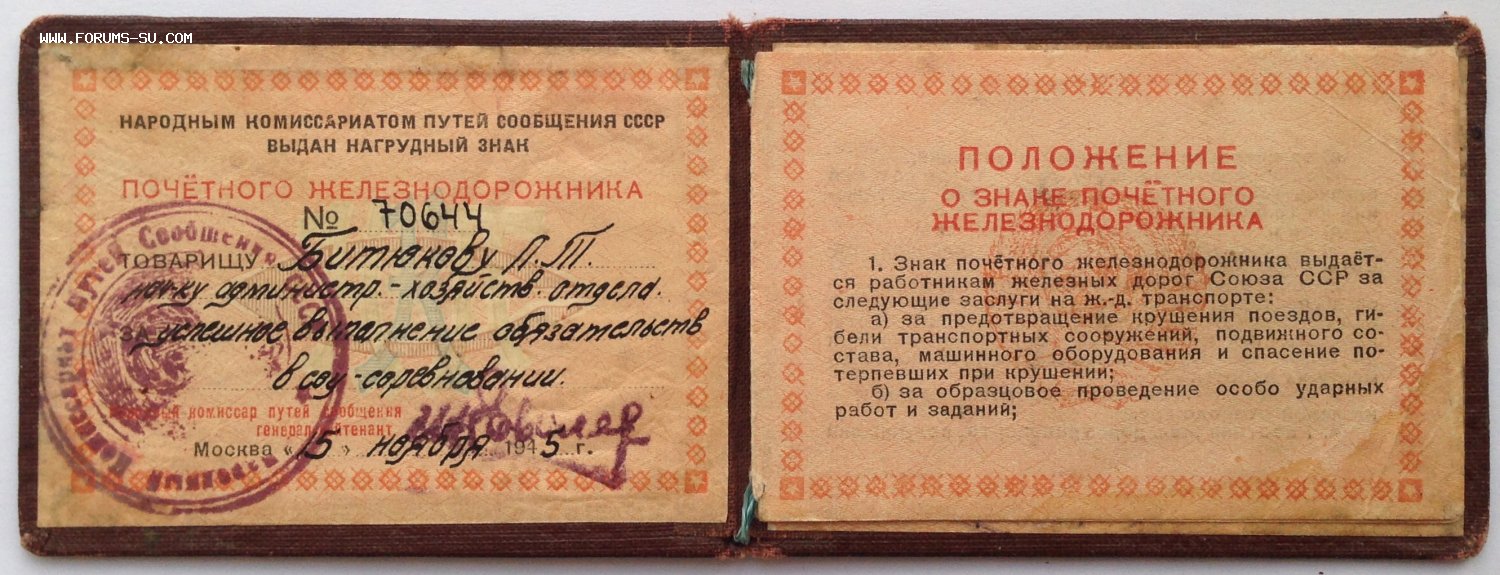 WWW.FORUMS-SU.COM
НАРОДНЫМ КОМИССАРИАТОМ ПУТЕЙ СООБЩЕНИЯ СССР
ВЫДАН НАГРУДНЫЙ ЗНАК
ПОЧЁТНОГО ЖЕЛЕЗНОДОРОЖНИКА
№ 70644
ТОВАРИЩУ Битюкову Л.Т.
нач-ку администр.-хозяйств. отдела.
ЗА успешное выполнение обязательств
в соц-соревновании.
Народный комиссар путей сообщения
генерал-лейтенант
Москва «15» ноября 1945 г.
Народный Комиссариат Путей Сообщения
ПОЛОЖЕНИЕ
О ЗНАКЕ ПОЧЁТНОГО
ЖЕЛЕЗНОДОРОЖНИКА
1. Знак почётного железнодорожника выдаёт-
ся работникам железных дорог Союза ССР за
следующие заслуги на ж.-д. транспорте:
а) за предотвращение крушения поездов, ги-
бели транспортных сооружений, подвижного со-
става, машинного оборудования и спасение по-
терпевших при крушении;
б) за образцовое проведение особо ударных
работ и заданий;